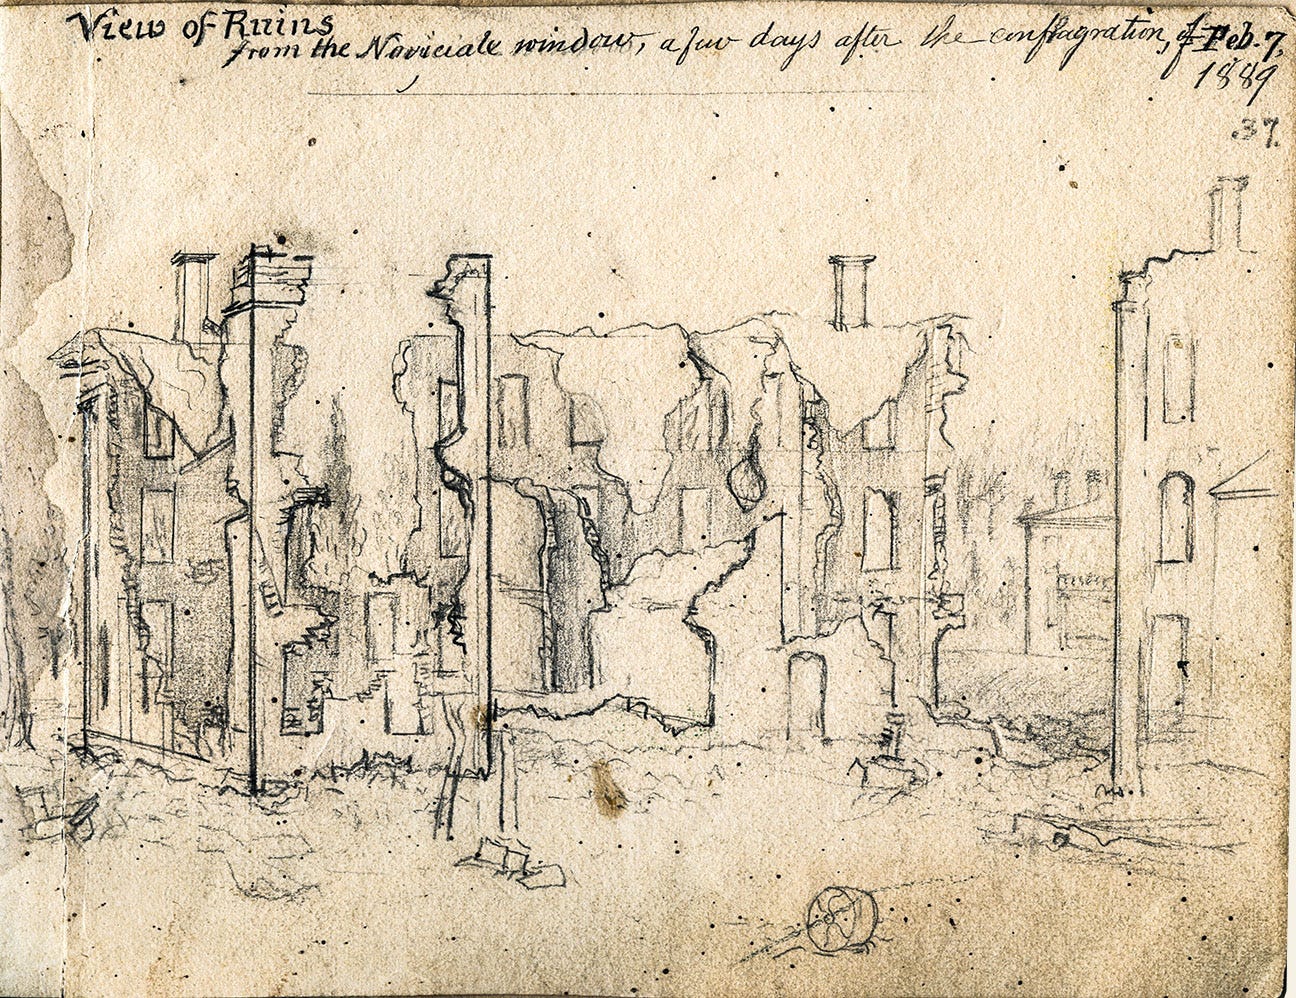 View of Ruins
from the Noviciate window, a few days after the conflagration, of Feb. 7,
1889
37.